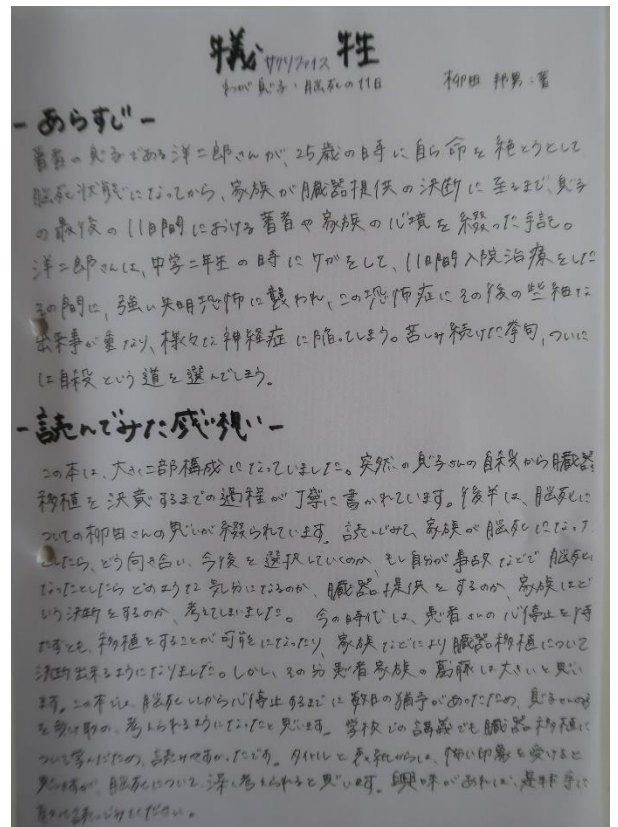 犠牲 サクリファイス
わが息子・脳死の11日 柳田 邦男:著
-あらすじ-
著者の息子である洋二郎さんが、25歳の時に自ら命を絶とうとして
脳死状態になってから、家族が臓器提供の決断に至るまで、息子
の最後の11日間における著者や家族の心境を綴った手記。
洋二郎さんは、中学二年生の時にケガをして、11日間入院治療をした
その間に、強い失明恐怖に襲われ、この恐怖症にその後の些細な
出来事が重なり、様々な神経症に陥ってしまう。苦しみ続けた挙句、ついに
は自殺という道を選んでしまう。
-読んでみた感想い-
この本は、大きく二部構成になっていました。突然の息子さんの自殺から臓器
移植を決意するまでの過程が丁寧に書かれています。後半は、脳死に
ついての柳田さんの思いが綴られています。読んでみて、家族が脳死になった
としたら、どう向き合い、今後を選択していくのか、もし自分が事故などで脳死に
なったとしたらどのような気分になるのか、臓器提供をするのか、家族はど
ういう決断をするのか、考えてしまいました。今の時代は、患者さんの心停止を待
たずとも、移植をすることが可能になったり、家族などにより臓器移植について
決断出来るようになりました。しかし、その分患者家族の葛藤は大きいと思い
ます。この本では、脳死してから心停止するまでに数日の猶予があったため、息子さんの死
を受け取め、考えられるようになったと思います。学校での講義でも臓器移植に
ついて学んだため、読みやすかったです。タイトルと表紙からは、怖い印象を受けると
思いますが、脳死について、深く考えられると思います。興味があれば、是非手に
取って読んでみてください。